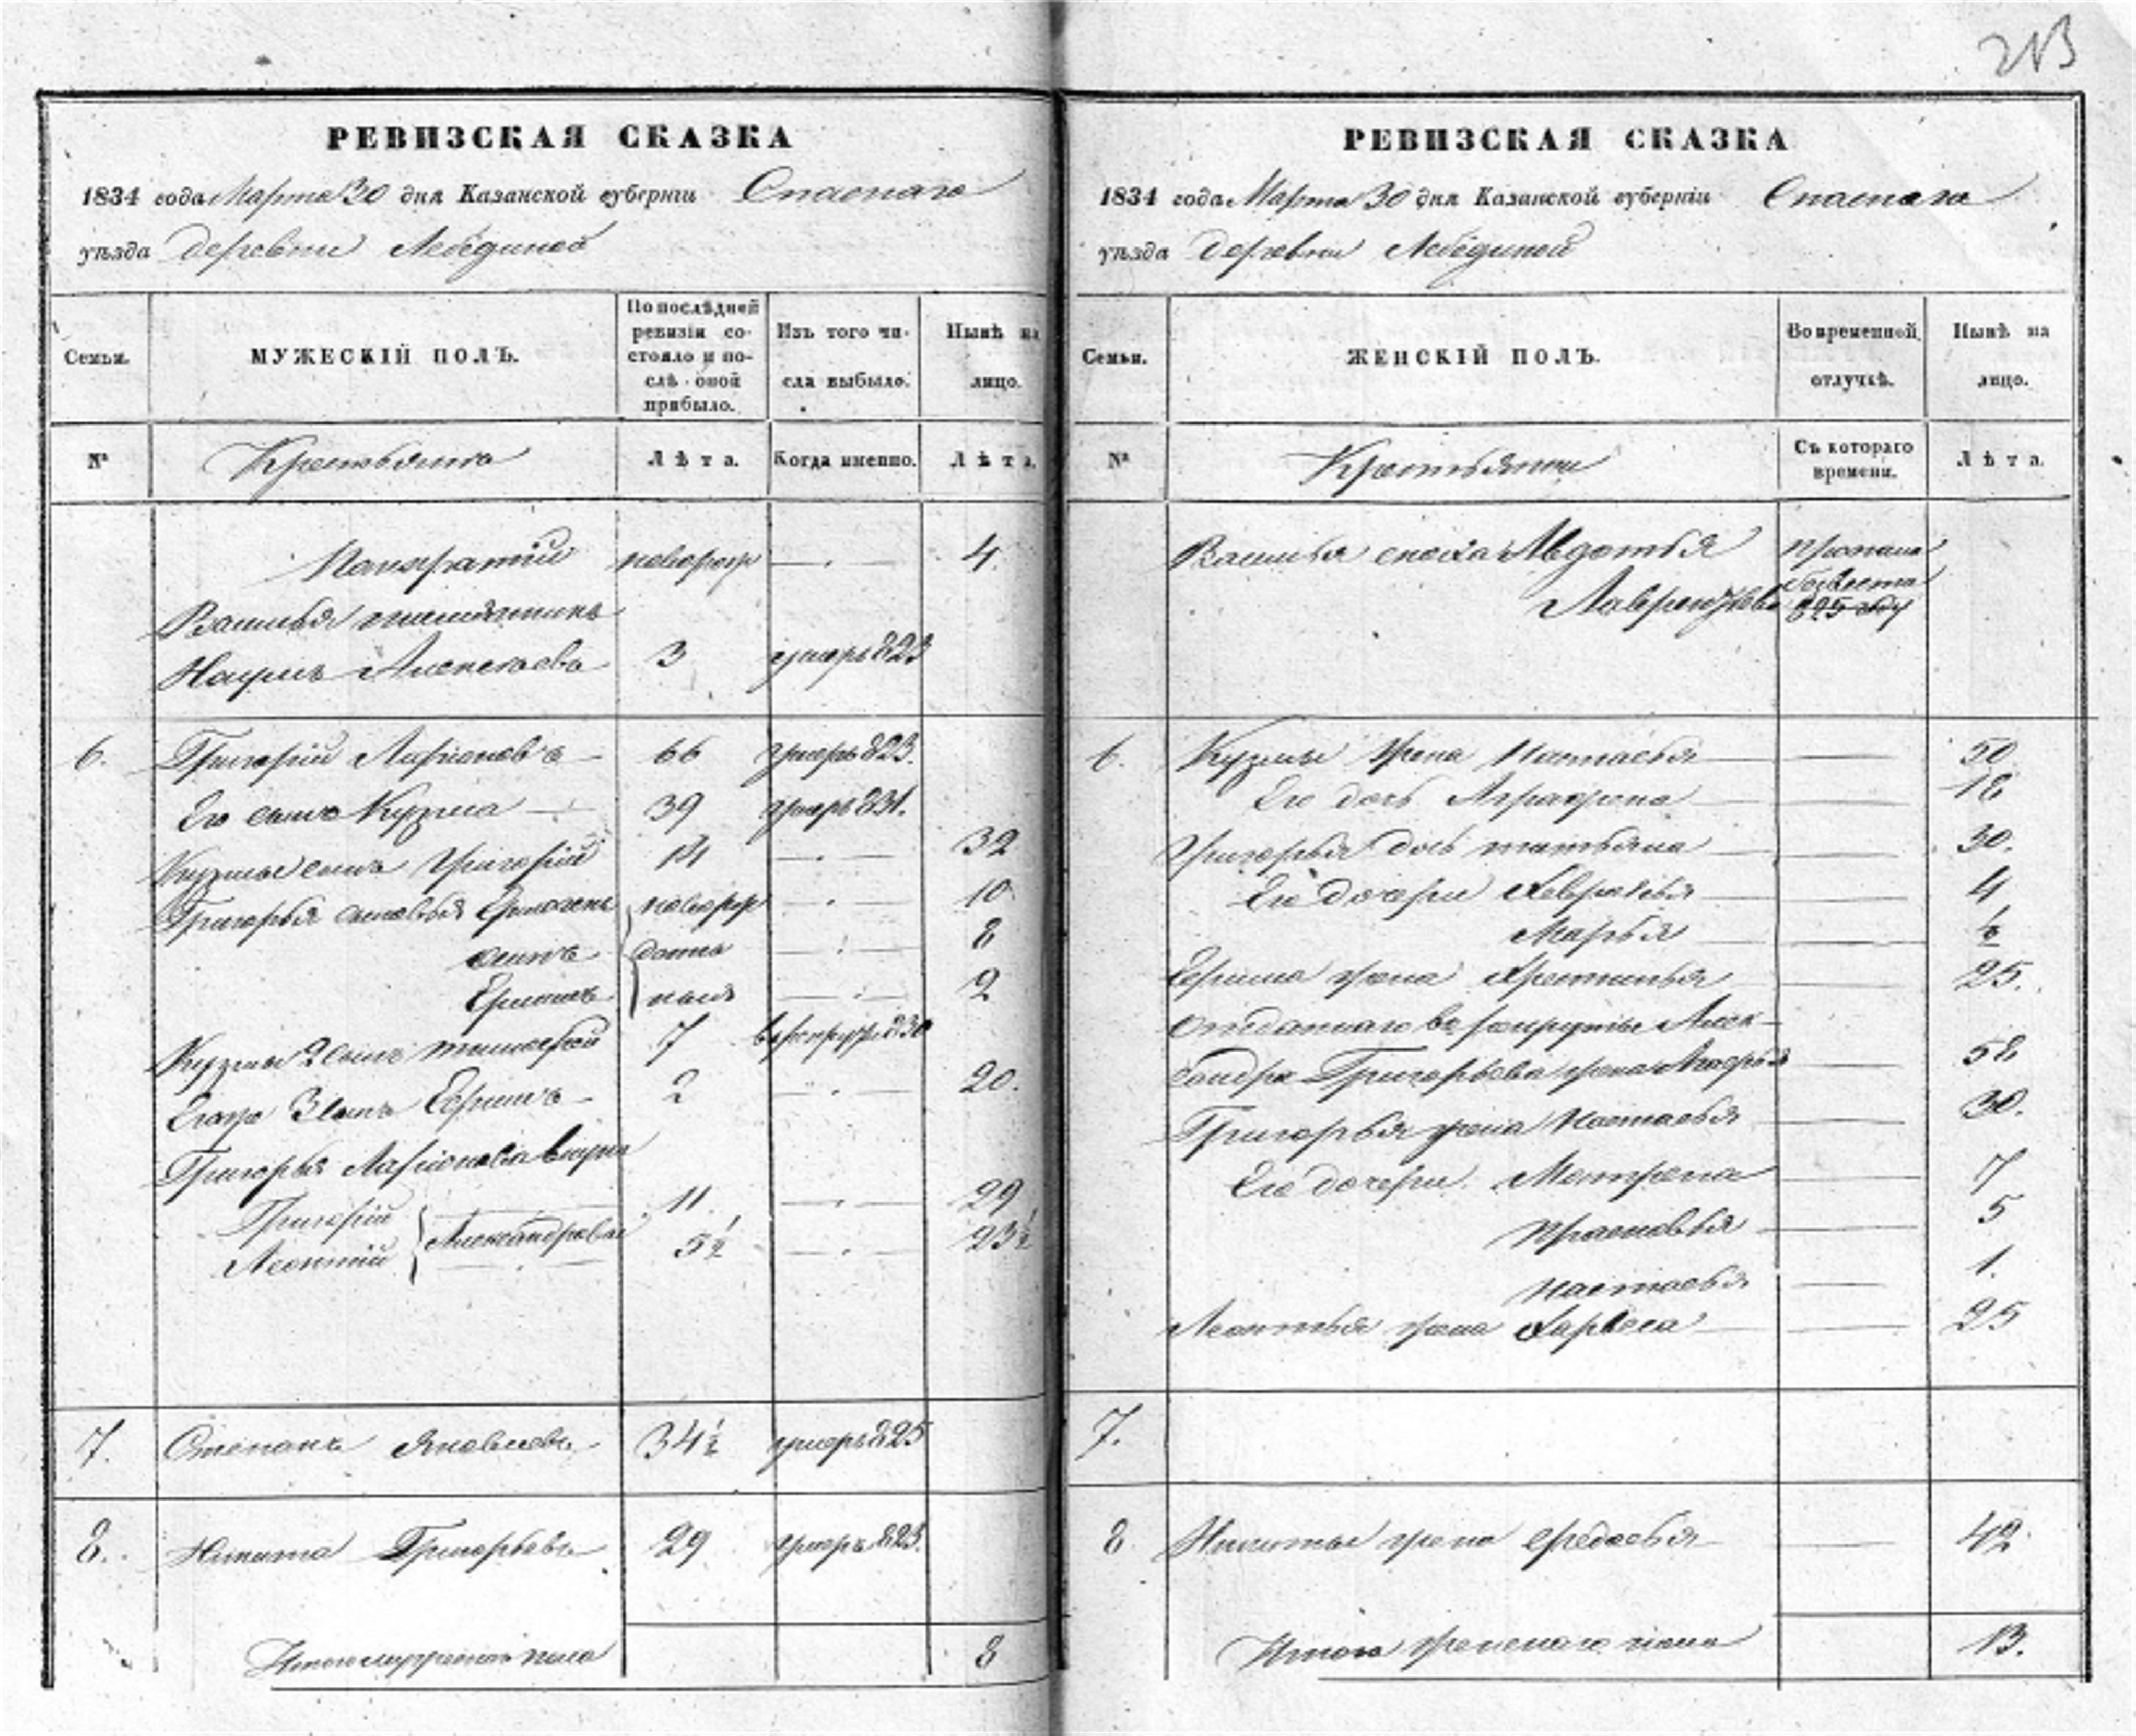 213
РЕВИЗСКАЯ СКАЗКА
1834 года Марта 30 дня Казанской губерніи Спаскаго
уѣзда деревни Лебединой
Семьи.
МУЖЕСКІЙ ПОЛЪ.
По послѣдней ревизіи со-
стояло и по-
слѣ оной
прибыло.
Изъ того чи-
сла выбыло.
Нынѣ на
лицо.
№
Лѣта.
Когда именно.
Лѣта.
Панкратій новорож — 4.
Василья племянникъ
Алексеевъ 3 умеръ 823
6. Григорій Ларионовъ 66 умеръ 823.
Его сынъ Кузма 39 умеръ 831.
Кузмы сынъ Григорій 14 — 32
Григорья сыновья Ермогенъ новорж — 10
8
Ермилъ 2
Кузмы 2 сынъ Тимофей 7 в рекруты 830
Егоже 3 сынъ Ефимъ 2 — 20.
Григорья Ларионова внуки
Григорій Александровы 11. — 29
Леонтій 5½ — 23½
7. Степанъ Яковлевъ 34½ умеръ 825
8. Никита Григорьевъ 29 умеръ 823.
Итого мужеска пола 8
РЕВИЗСКАЯ СКАЗКА
1834 года Марта 30 дня Казанской губерніи Спаскаго
уѣзда деревни Лебединой
Семьи.
ЖЕНСКІЙ ПОЛЪ.
Во временной
отлучкѣ.
Нынѣ на
лицо.
№
Съ котораго
времени.
Лѣта.
Василья сноха Авдотья пропала
Лаврентьева безвестно
825 году
6. Кузмы жена Настасья — 50
Его дочь Аграфена — 18
Григорья дочь Татьяна — 30.
Его дочери Февронья — 4
Марья — ½
Ефима жена — 25.
Отданнаго в рекруты Алек-
сандра Григорьева жена — 58
Григорья жена Настасья — 30.
Его дочери Матрена — 7
Прасковья — 5
Настасья — 1.
Леонтья жена — 25
7.
8 Никиты жена Федосья — 42
Итого женскаго пола 13.